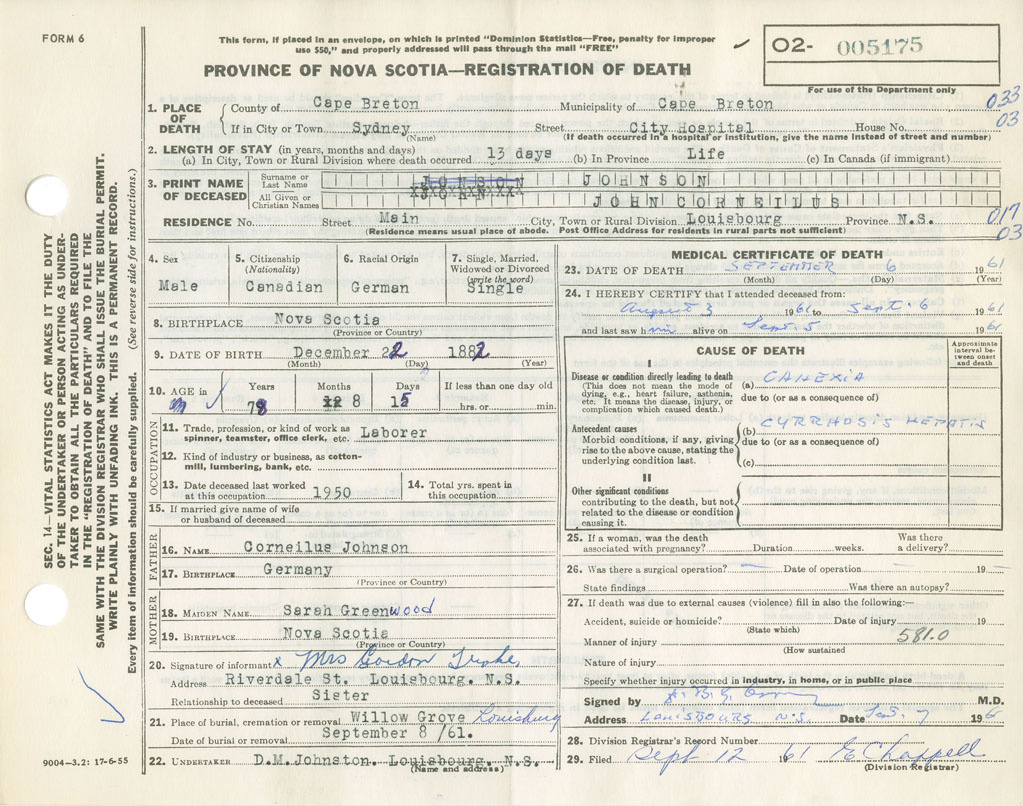 FORM 6
This form, if placed in an envelope, on which is printed "Dominion Statistics—Free, penalty for improper
use $50," and properly addressed will pass through the mail "FREE"
02- 005175
For use of the Department only
PROVINCE OF NOVA SCOTIA—REGISTRATION OF DEATH
1. PLACE OF DEATH County of Cape Breton Municipality of Cape Breton 033
If in City or Town Sydney Street City Hospital House No. 03
(Name) (If death occurred in a hospital or institution, give the name instead of street and number)
2. LENGTH OF STAY (in years, months and days)
(a) In City, Town or Rural Division where death occurred 13 days (b) In Province Life (c) In Canada (if immigrant)
3. PRINT NAME OF DECEASED
Surname or Last Name JOHNSON JOHNSON
All Given or Christian Names JOHN CORNEILUS
RESIDENCE No. Street Main City, Town or Rural Division Louisbourg Province N.S. 017
03
(Residence means usual place of abode. Post Office Address for residents in rural parts not sufficient)
4. Sex
Male
5. Citizenship
(Nationality)
Canadian
6. Racial Origin
German
7. Single, Married,
Widowed or Divorced
(write the word)
Single
8. BIRTHPLACE Nova Scotia
(Province or Country)
9. DATE OF BIRTH December 22 1882
(Month) (Day) (Year)
10. AGE in
Years Months Days If less than one day old
78 8 15 hrs. or min.
OCCUPATION
11. Trade, profession, or kind of work as
spinner, teamster, office clerk, etc. Laborer
12. Kind of industry or business, as cotton-
mill, lumbering, bank, etc.
13. Date deceased last worked
at this occupation 1950
14. Total yrs. spent in
this occupation
15. If married give name of wife
or husband of deceased
FATHER
16. NAME Corneilus Johnson
17. BIRTHPLACE Germany
(Province or Country)
MOTHER
18. MAIDEN NAME Sarah Greenwood
19. BIRTHPLACE Nova Scotia
(Province or Country)
20. Signature of informant x Mrs Gordon
Address Riverdale St. Louisbourg. N.S.
Relationship to deceased Sister
21. Place of burial, cremation or removal Willow Grove Louisburg
Date of burial or removal September 8 /61.
22. UNDERTAKER D.M.Johnston. Louisbourg. N.S.
(Name and address)
MEDICAL CERTIFICATE OF DEATH
23. DATE OF DEATH SEPTEMBER 6 1961
(Month) (Day) (Year)
24. I HEREBY CERTIFY that I attended deceased from:
August 3 1961 to Sept. 6 1961
and last saw him alive on Sept. 5 1961
CAUSE OF DEATH
Approximate
interval be-
tween onset
and death
I
Disease or condition directly leading to death
(This does not mean the mode of
dying, e.g., heart failure, asthenia,
etc. It means the disease, injury, or
complication which caused death.)
(a) CAHEXIA
due to (or as a consequence of)
Antecedent causes
Morbid conditions, if any, giving
rise to the above cause, stating the
underlying condition last.
(b) CYRRHOSIS HEPATIS
due to (or as a consequence of)
(c)
II
Other significant conditions
contributing to the death, but not
related to the disease or condition
causing it.
25. If a woman, was the death
associated with pregnancy? Duration weeks. Was there
a delivery?
26. Was there a surgical operation? — Date of operation — 19 —
State findings Was there an autopsy?
27. If death was due to external causes (violence) fill in also the following:—
Accident, suicide or homicide? Date of injury 19
(State which)
Manner of injury 581.0
(How sustained
Nature of injury
Specify whether injury occurred in industry, in home, or in public place
Signed by M.D.
Address LOUISBOURG N.S. Date Sep. 7 196
28. Division Registrar's Record Number
29. Filed Sept 12 1961 E Chappell
(Division Registrar)
SEC. 14—VITAL STATISTICS ACT MAKES IT THE DUTY
OF THE UNDERTAKER OR PERSON ACTING AS UNDER-
TAKER TO OBTAIN ALL THE PARTICULARS REQUIRED
IN THE "REGISTRATION OF DEATH" AND TO FILE THE
SAME WITH THE DIVISION REGISTRAR WHO SHALL ISSUE THE BURIAL PERMIT.
WRITE PLAINLY WITH UNFADING INK. THIS IS A PERMANENT RECORD.
Every item of information should be carefully supplied. (See reverse side for instructions.)
9004—3.2: 17-6-55